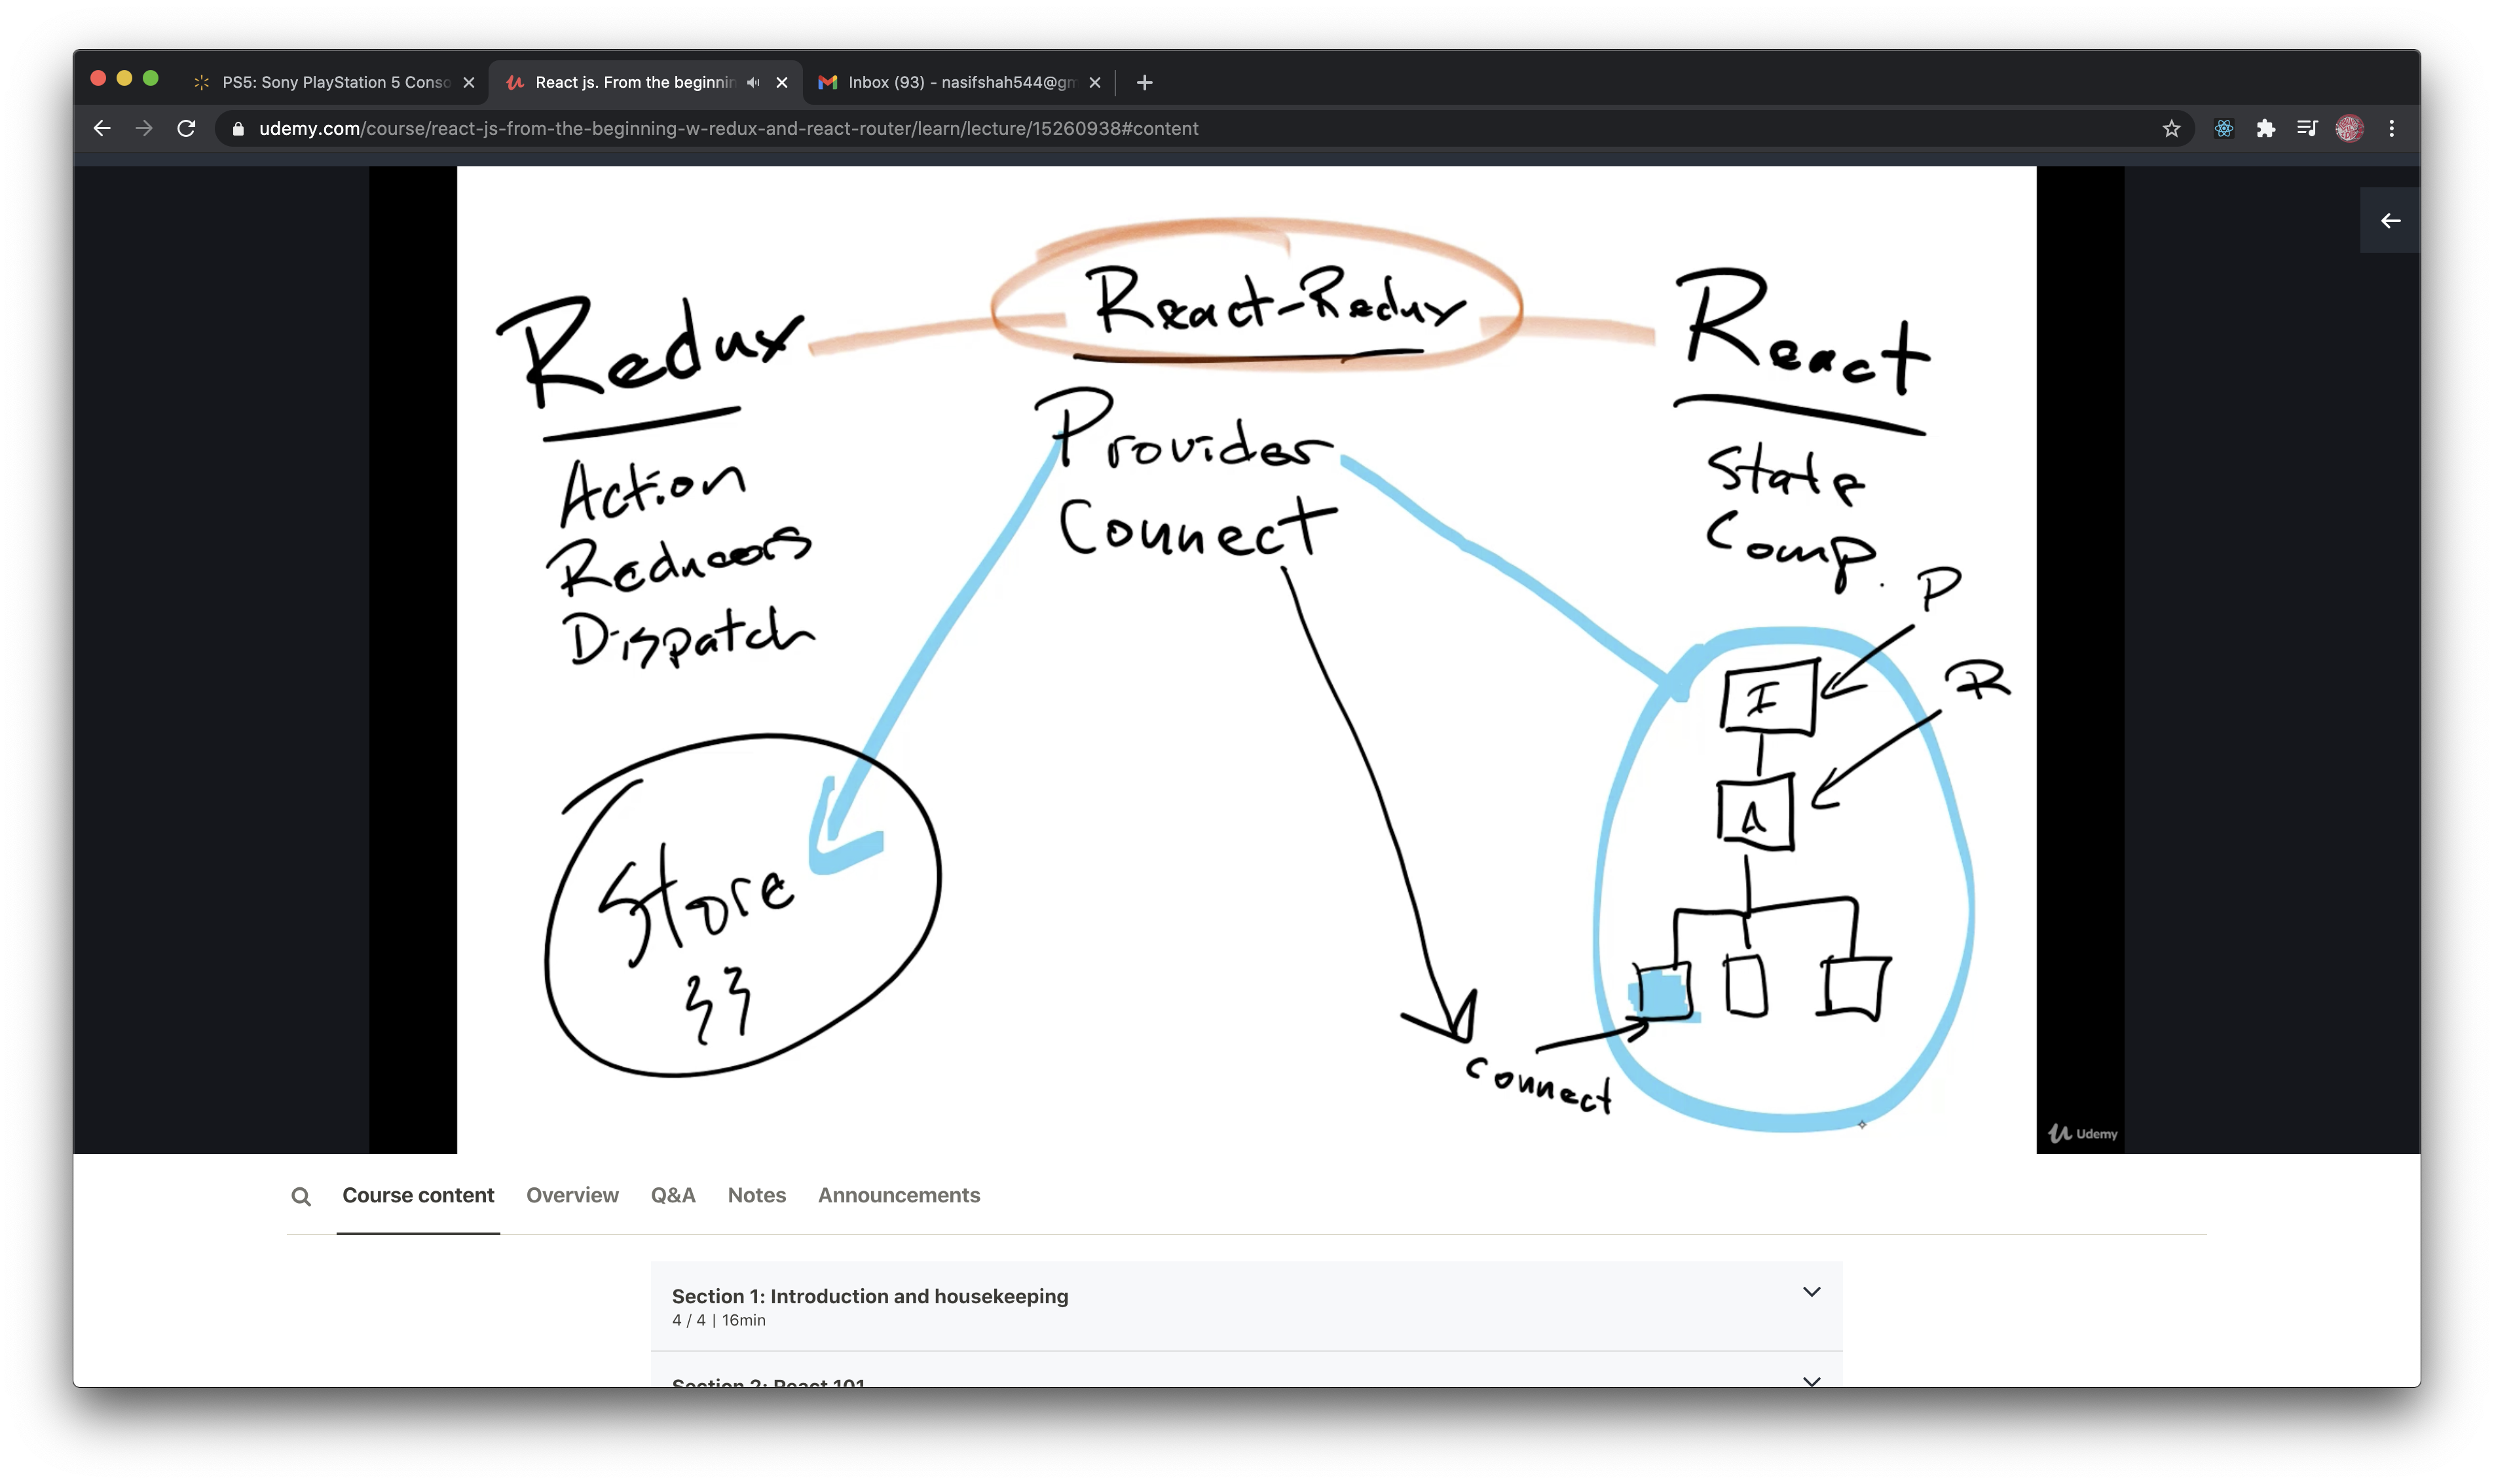 PS5: Sony PlayStation 5 Conso
React js. From the beginnin
Inbox (93) - nasifshah544@gm
udemy.com/course/react-js-from-the-beginning-w-redux-and-react-router/learn/lecture/15260938#content
React-Redux
Redux
React
Provider
Connect
Action
Reducers
Dispatch
State
Comp.
P
R
I
A
Store
connect
Udemy
Course content
Overview
Q&A
Notes
Announcements
Section 1: Introduction and housekeeping
4 / 4 | 16min
Section 2: React 101